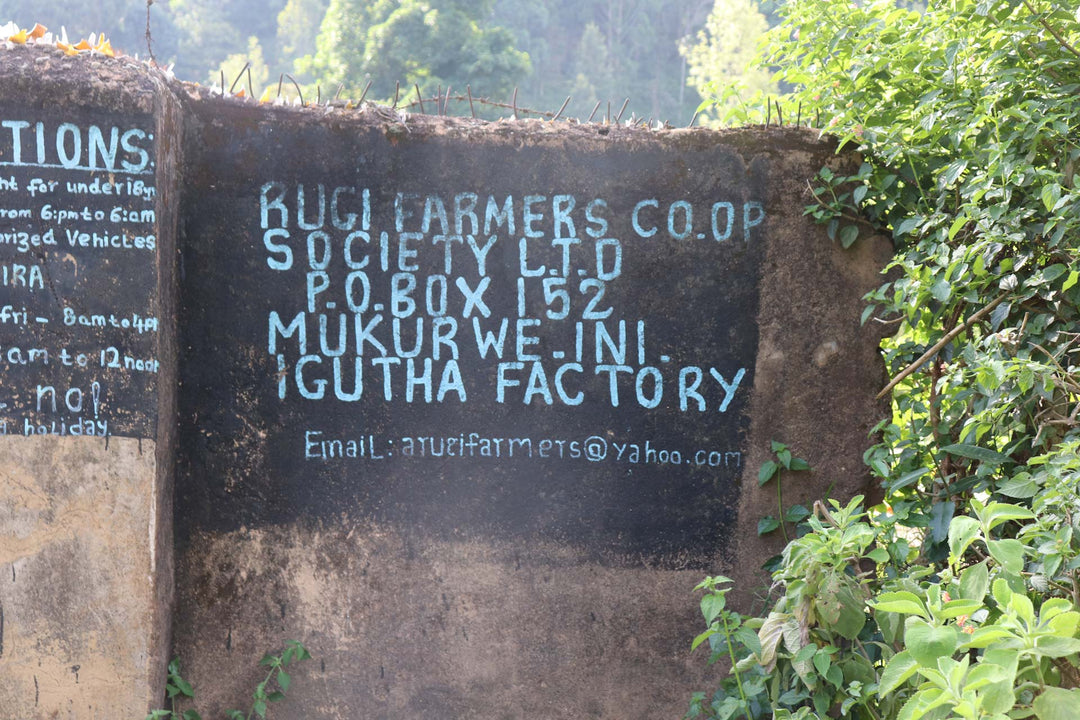 TIONS:
ht for under 18y
rom 6:pm to 6:am
orized Vehicles
IRA
fri - 8am to 4P
am to 12noon
no!
a holiday
RUGI FARMERS CO.OP
SOCIETY L.T.D
P.O.BOX 152
MUKURWE-INI.
IGUTHA FACTORY
Email: arugifarmers@yahoo.com